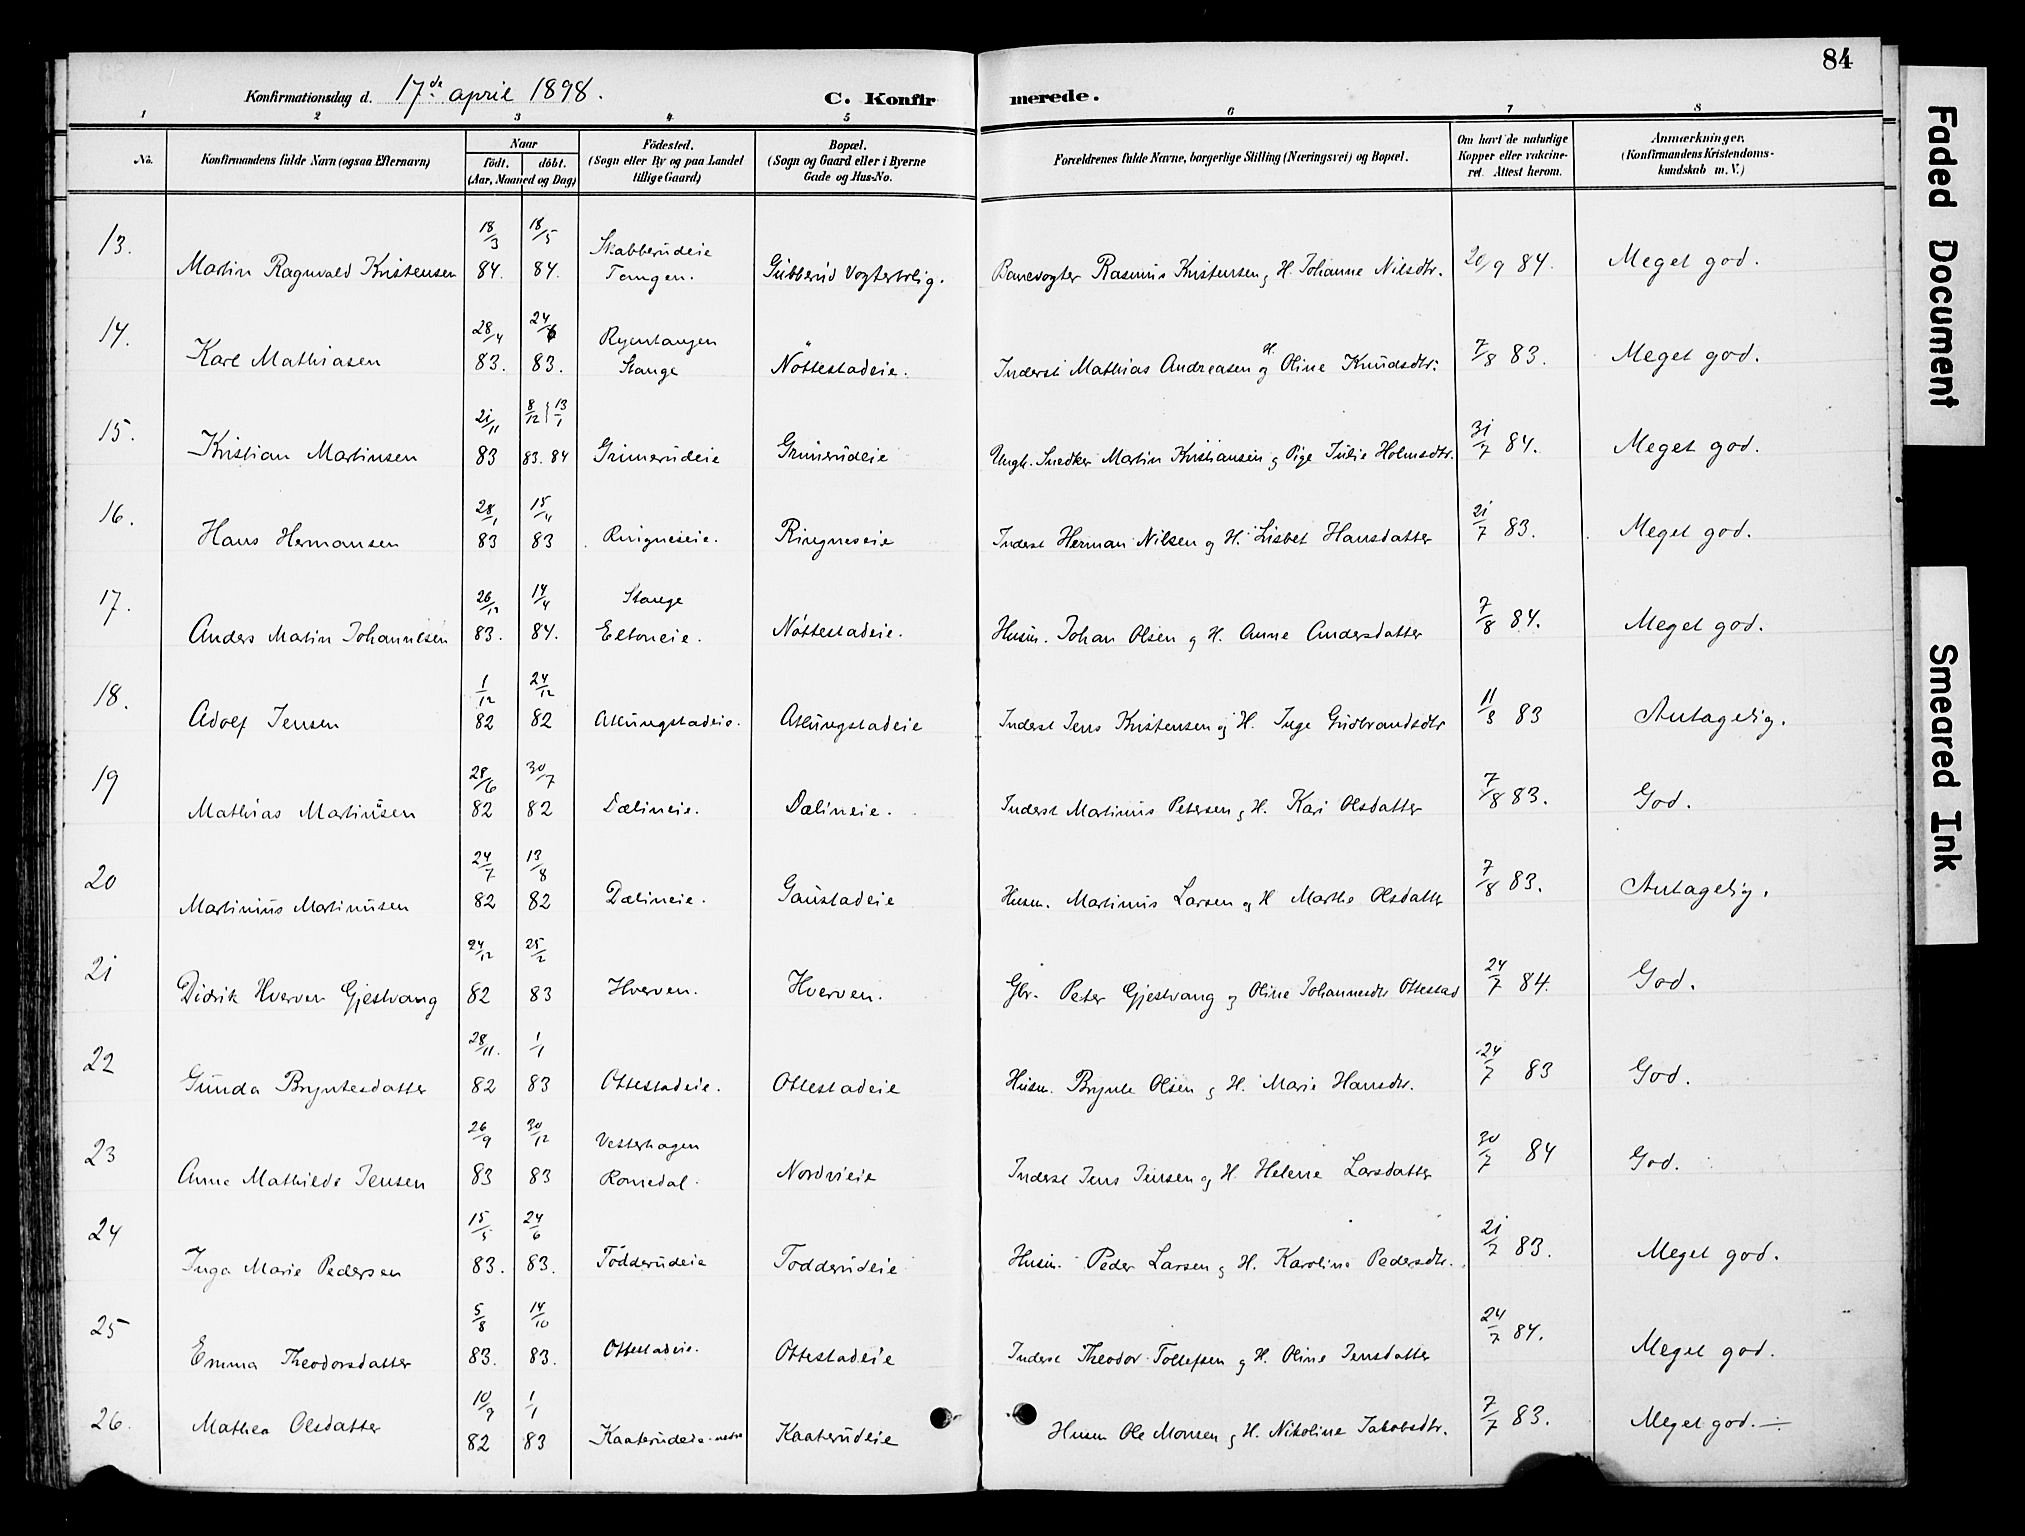 84
Konfirmationsdag d. 17de april 1898.
C. Konfirmerede.
1 2 3 4 5 6 7 8
No.
Konfirmandens fulde Navn (ogsaa Efternavn)
Naar
födt. döbt.
(Aar, Maaned og Dag)
Födested.
(Sogn eller By og paa Landet
tillige Gaard)
Bopæl.
(Sogn og Gaard eller i Byerne
Gade og Hus-No.
Forældrenes fulde Navne, borgerlige Stilling (Næringsvei) og Bopæl.
Om havt de naturlige
Kopper eller vakcine-
ret. Attest herom.
Anmærkninger,
(Konfirmandens Kristendoms-
kundskab m. V.)
13. Martin Ragnvald Kristensen 18/3 84. 18/5 84. Skabberudeie Tangen. Gubberud Vogterbolig. Banevogter Rasmus Kristensen og H. Johanne Nilsdtr. 20/9 84. Meget god.
14. Karl Mathiasen 28/4 83. 24/6 83. Stange Nöttestadeie. Inderst Mathias Andreasen og H. Oline Knudsdtr. 7/8 83. Meget god.
15. Kristian Martinsen 21/11 83 8/12 83. 13/1 84 Grimerudeie Grimerudeie Ungk. Snedker Martin Kristiansen og Pige Julie Holmsdtr. 31/7 84. Meget god.
16. Hans Hermansen 28/1 83 15/4 83 Ringneseie. Ringneseie Inderst Herman Nilsen og H. Lisbet Hansdatter 21/7 83. Meget god.
17. Anders Martin Johannesen 26/12 83. 14/4 84. Stange Eltoneie. Nöttestadeie. Husm. Johan Olsen og H. Anne Andersdatter 7/8 84. Meget god.
18. Adolf Jensen 1/12 82 24/12 82 Atlungstadeie. Atlungstadeie Inderst Jens Kristensen og H. Inge Gudbrandsdtr 11/3 83 Antagelig.
19 Mathias Martinusen 28/6 82 30/7 82 Dælineie. Dælineie. Inderst Martinus Petersen og H. Kari Olsdatter 7/8 83. God.
20 Martinius Martinusen 24/7 82 13/8 82 Dælineie. Gaustadeie Husm. Martinus Larsen og H Marthe Olsdatter 7/8 83. Antagelig.
21 Didrik Hverven Gjestvang 24/12 82 25/2 83 Hverven. Hverven. Gbr. Peter Gjestvang og Oline Johannesdtr Ottestad 24/7 84. God.
22 Gunda Bryntesdatter 28/11. 82 1/1 83 Ottestadeie. Ottestadeie Husm. Brynte Olsen og H. Marie Hansdtr. 24/7 83 God.
23 Anne Mathilde Jensen 26/9 83 30/12 83 Vesterhagen Romedal. Nordvieie Inderst Jens Jensen og H. Helene Larsdatter 30/7 84 God.
24 Inga Marie Pedersen 15/5 83. 24/6 83. Tödderudeie Tödderudeie Husm. Peder Larsen og H. Karoline Pedersdtr. 21/7 83. Meget god.
25 Emma Theodorsdatter 5/8 83. 14/10 83. Ottestadeie. Ottestadeie Inderst Theodor Tollefsen og H. Oline Jensdatter 24/7 84. Meget god.
26. Mathea Olsdatter 10/9 82 1/1 83 Kaaterudeie nedre Kaaterudeie Husm Ole Monsen og H. Nikoline Jakobsdtr. 7/7 83. Meget god.
Faded Document
Smeared Ink